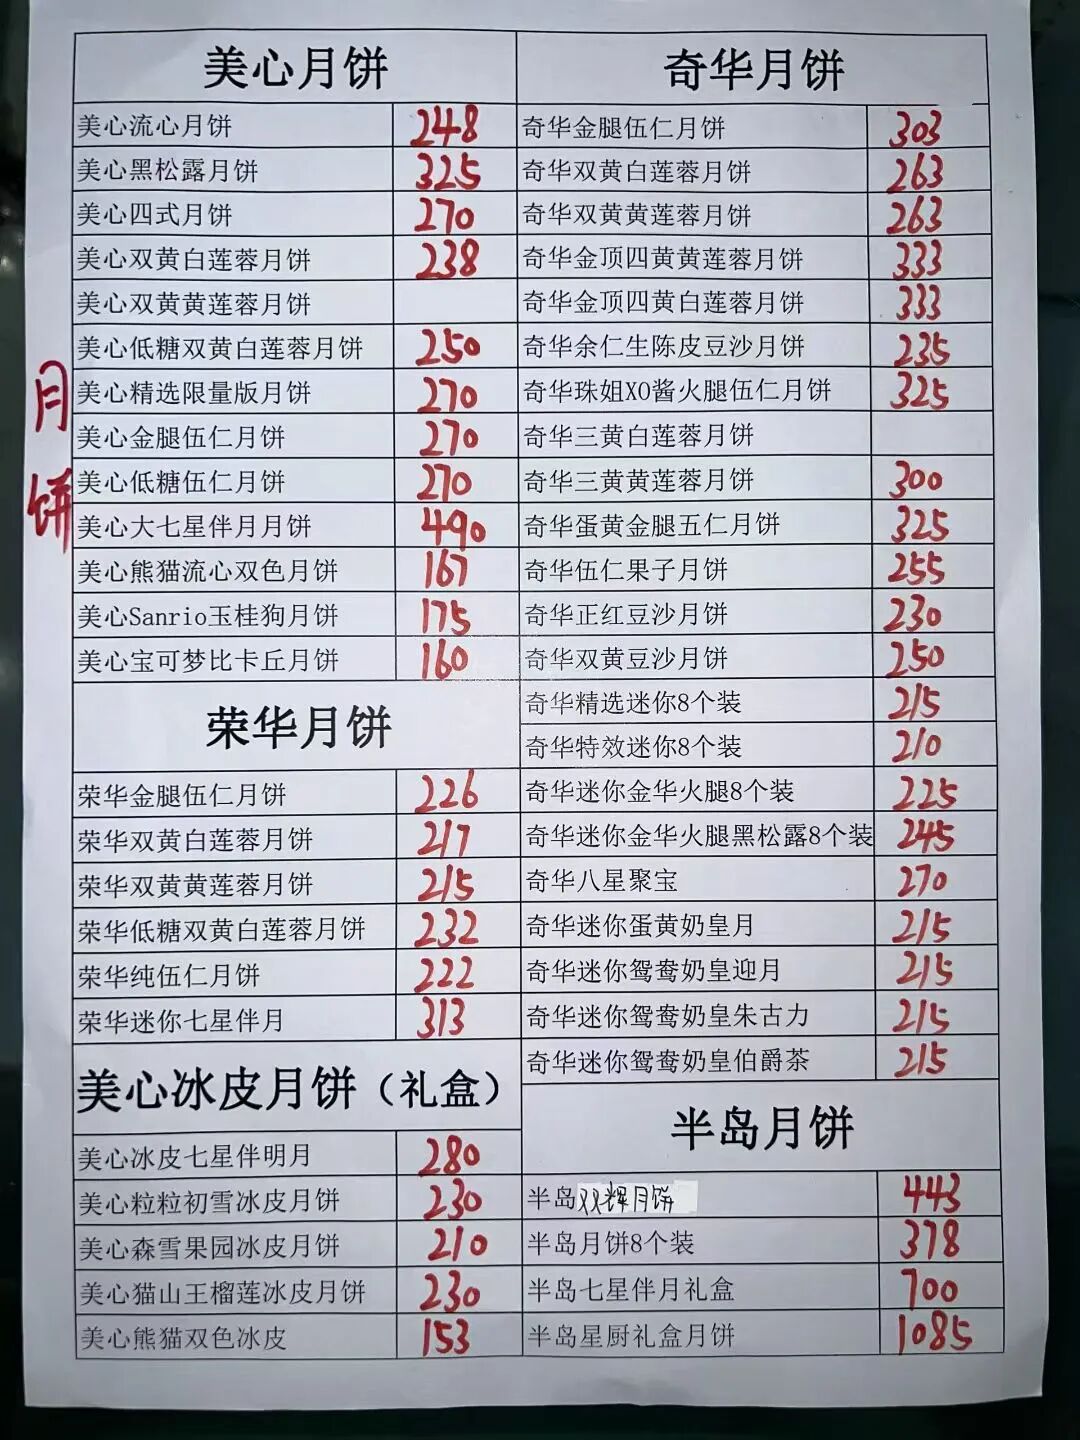 月饼
美心月饼
美心流心月饼 248
美心黑松露月饼 325
美心四式月饼 270
美心双黄白莲蓉月饼 238
美心双黄黄莲蓉月饼
美心低糖双黄白莲蓉月饼 250
美心精选限量版月饼 270
美心金腿伍仁月饼 270
美心低糖伍仁月饼 270
美心大七星伴月月饼 490
美心熊猫流心双色月饼 167
美心Sanrio玉桂狗月饼 175
美心宝可梦比卡丘月饼 160
荣华月饼
荣华金腿伍仁月饼 226
荣华双黄白莲蓉月饼 217
荣华双黄黄莲蓉月饼 215
荣华低糖双黄白莲蓉月饼 232
荣华纯伍仁月饼 222
荣华迷你七星伴月 313
美心冰皮月饼（礼盒）
美心冰皮七星伴明月 280
美心粒粒初雪冰皮月饼 230
美心森雪果园冰皮月饼 210
美心猫山王榴莲冰皮月饼 230
美心熊猫双色冰皮 153
奇华月饼
奇华金腿伍仁月饼 303
奇华双黄白莲蓉月饼 263
奇华双黄黄莲蓉月饼 263
奇华金顶四黄黄莲蓉月饼 333
奇华金顶四黄白莲蓉月饼 333
奇华余仁生陈皮豆沙月饼 235
奇华珠姐XO酱火腿伍仁月饼 325
奇华三黄白莲蓉月饼
奇华三黄黄莲蓉月饼 300
奇华蛋黄金腿五仁月饼 325
奇华伍仁果子月饼 255
奇华正红豆沙月饼 230
奇华双黄豆沙月饼 250
奇华精选迷你8个装 215
奇华特效迷你8个装 210
奇华迷你金华火腿8个装 225
奇华迷你金华火腿黑松露8个装 245
奇华八星聚宝 270
奇华迷你蛋黄奶皇月 215
奇华迷你鸳鸯奶皇迎月 215
奇华迷你鸳鸯奶皇朱古力 215
奇华迷你鸳鸯奶皇伯爵茶 215
半岛月饼
半岛双辉月饼 443
半岛月饼8个装 378
半岛七星伴月礼盒 700
半岛星厨礼盒月饼 1085